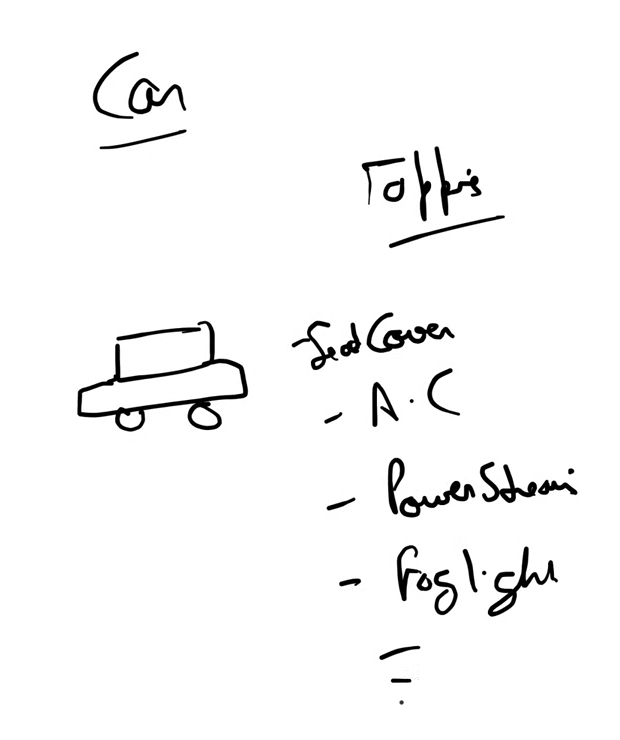 Car
Toppi's
- Seat Cover
- A.C
- Power Streni
- Foglight